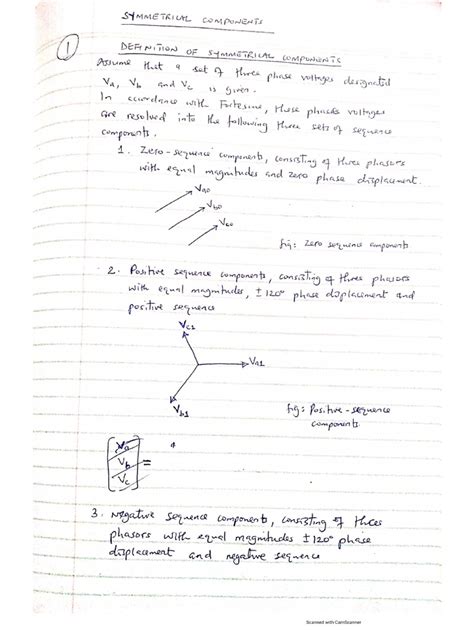 SYMMETRICAL COMPONENTS
1
DEFINITION OF SYMMETRICAL COMPONENTS
Assume that a set of three phase voltages designated
Va, Vb and Vc is given.
In accordance with Fortescue, these phase voltages
are resolved into the following three sets of sequence
components.
1. Zero-sequence components, consisting of three phasors
with equal magnitudes and zero phase displacement.
Va0
Vb0
Vc0
fig: Zero sequence components
2. Positive sequence components, consisting of three phasors
with equal magnitudes, ±120° phase displacement and
positive sequence
Vc1
Va1
Vb1
fig: Positive-sequence
components.
Va
Vb =
Vc
3. Negative sequence components, consisting of three
phasors with equal magnitudes ±120° phase
displacement and negative sequence
Scanned with CamScanner